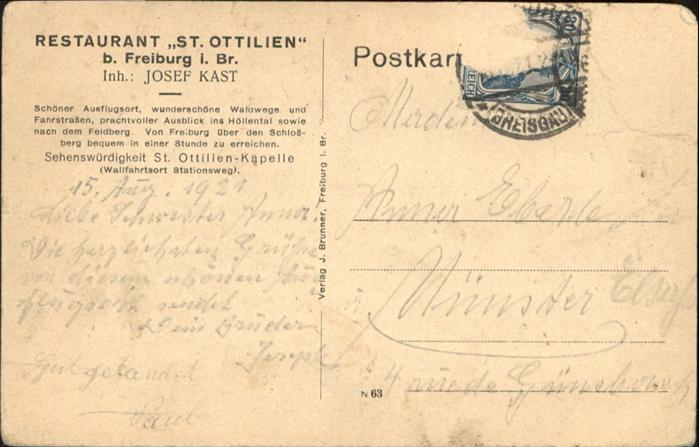 RESTAURANT „ST. OTTILIEN“
b. Freiburg i. Br.
Inh.: JOSEF KAST
Schöner Ausflugsort, wunderschöne Waldwege und
Fahrstraßen, prachtvoller Ausblick ins Höllental sowie
nach dem Feldberg. Von Freiburg über den Schloß-
berg bequem in einer Stunde zu erreichen.
Sehenswürdigkeit St. Ottilien-Kapelle
(Wallfahrtsort Stationsweg).
15. Aug. 1921
Liebe Schwester Anna!
Die herzlichsten Grüße
von diesem schönen Aus
flugsort sendet
Dein Bruder
Joseph
Gut gelandet
Paul
Verlag J. Brunner, Freiburg i. Br.
Postkart
REICH
(BREISGAU)
Anna Eberle
Münster Elsaß
4 rue de Günsbach
N 63